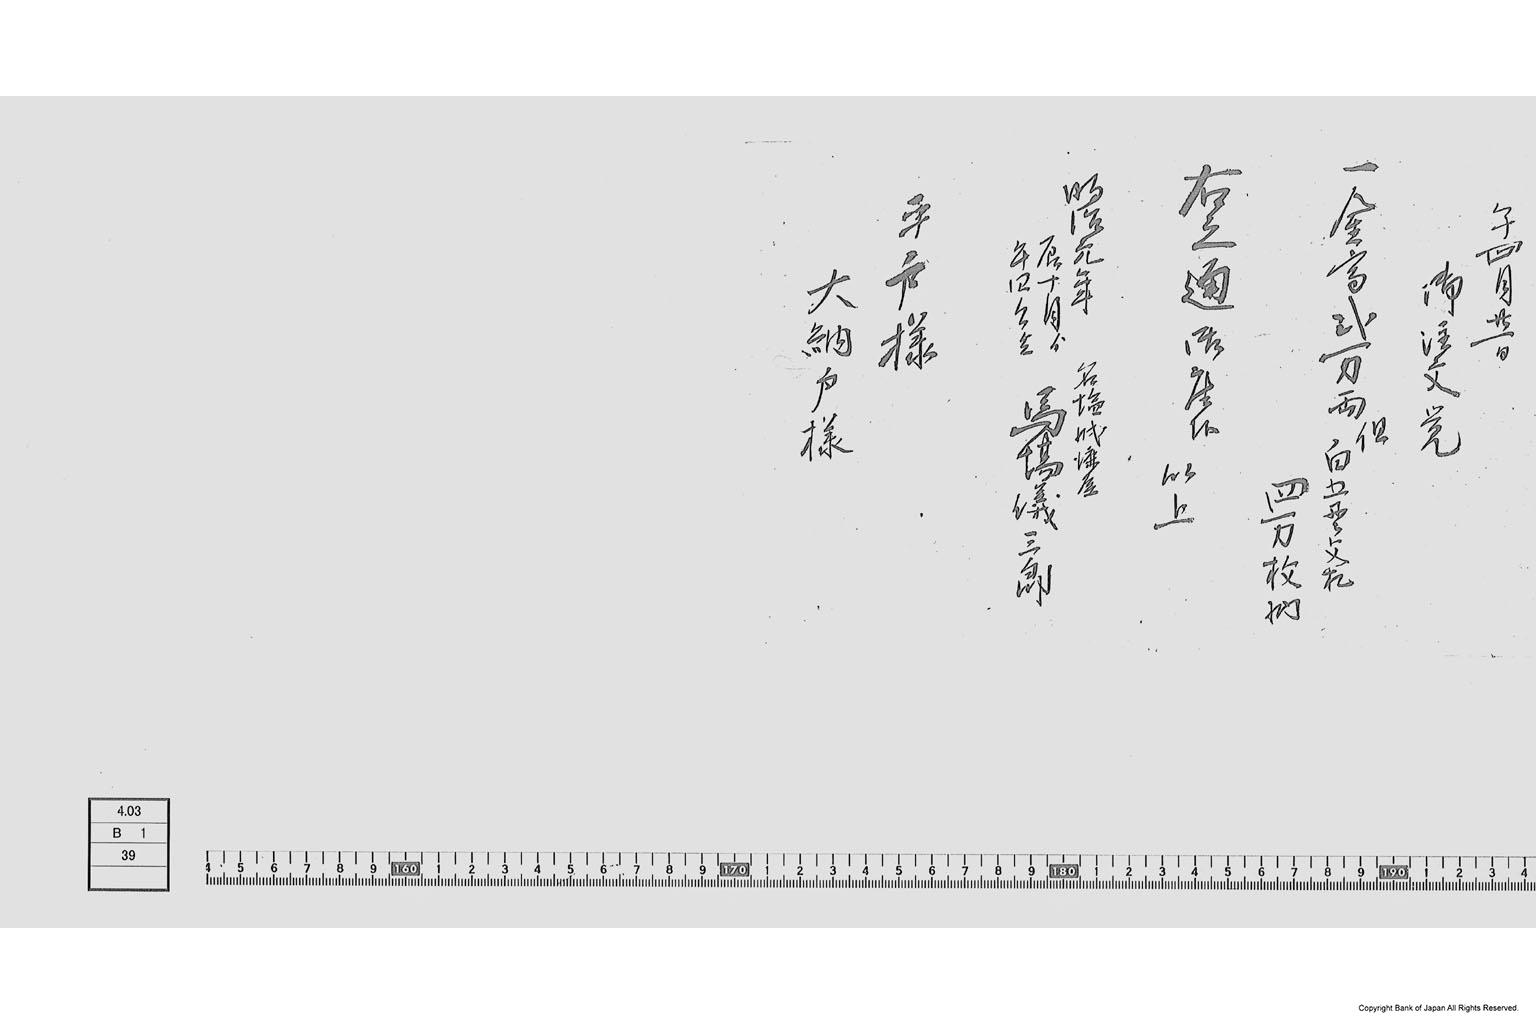 午四月廿一日
御注文覚
一金高弐万両 但
白土壱両札
四万枚
右之通御座候 以上
明治元年
辰十月分
午四月迄
名塩
馬場儀三郎
平戸様
大納戸様
4.03
B 1
39
4 5 6 7 8 9 160 1 2 3 4 5 6 7 8 9 170 1 2 3 4 5 6 7 8 9 180 1 2 3 4 5 6 7 8 9 190 1 2 3 4
Copyright Bank of Japan All Rights Reserved.